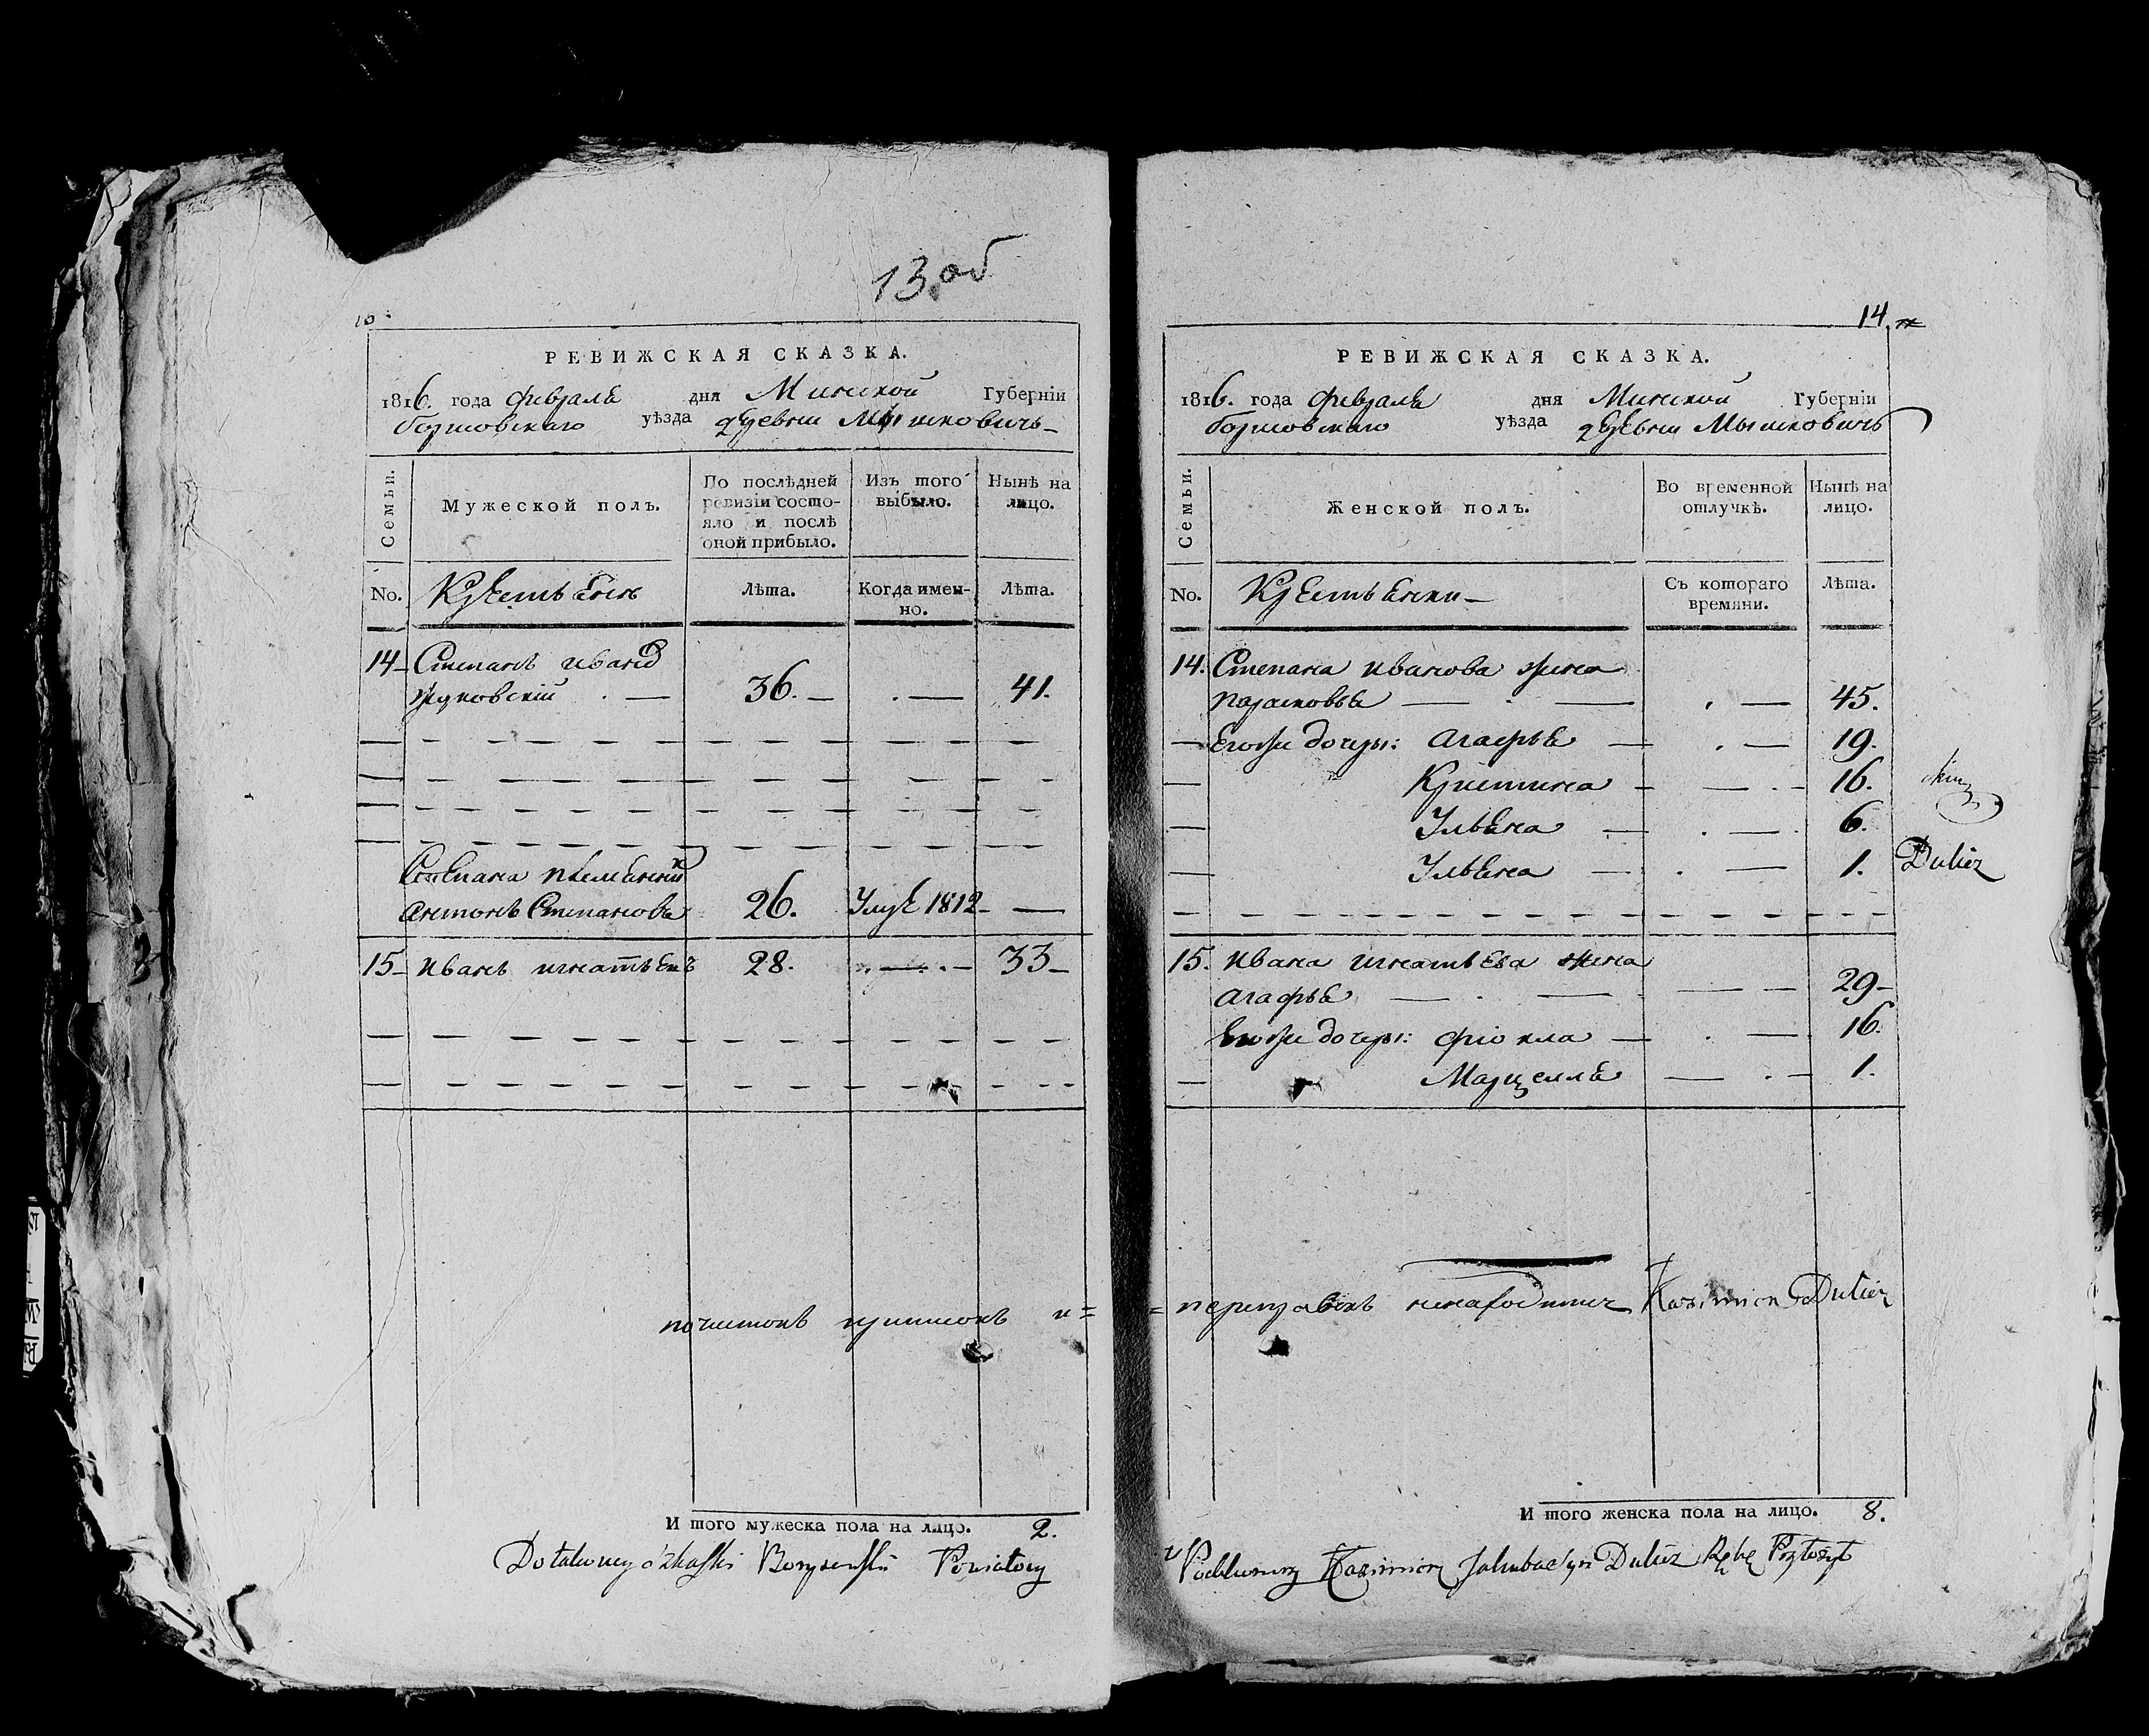 13 об
РЕВИЖСКАЯ СКАЗКА.
1816. года февраля дня Минской Губернїи
борисовскаго уѣзда деревни Мышковичь
Семьи.
Мужеской полъ.
По послѣдней ревизїи состояло и послѣ оной прибыло.
Изъ того выбыло.
Нынѣ на лицо.
No. Крестьянъ
Лѣта.
Когда именно.
Лѣта.
14 Степанъ иванов
36. 41.
Степана племянникъ
антонъ Степановъ 26. Умре 1812
15 иванъ игнатьевъ 28. 33
почисток
И того мужеска пола на лицо. 2.
Borysewski Powiatowy
14
РЕВИЖСКАЯ СКАЗКА.
1816. года февраля дня Минской Губернїи
борисовскаго уѣзда деревни Мышковичь
Семьи.
Женской полъ.
Во временной отлучкѣ.
Нынѣ на лицо.
No. Крестьянки
Съ котораго времяни.
Лѣта.
14. Степана иванова жена
парасковья 45.
Егожъ дочеры: агафья 19.
Кристина 16.
Ульяна 6.
Ульяна 1.
Dulicz
15. ивана игнатьева жена
агафья 29
Егожъ дочеры: фіокла 16.
Марцелля 1.
Kazimierz Dulicz
И того женска пола на лицо. 8.
Podkomorzy Kazimierz Dulicz Rękę Przyłożył